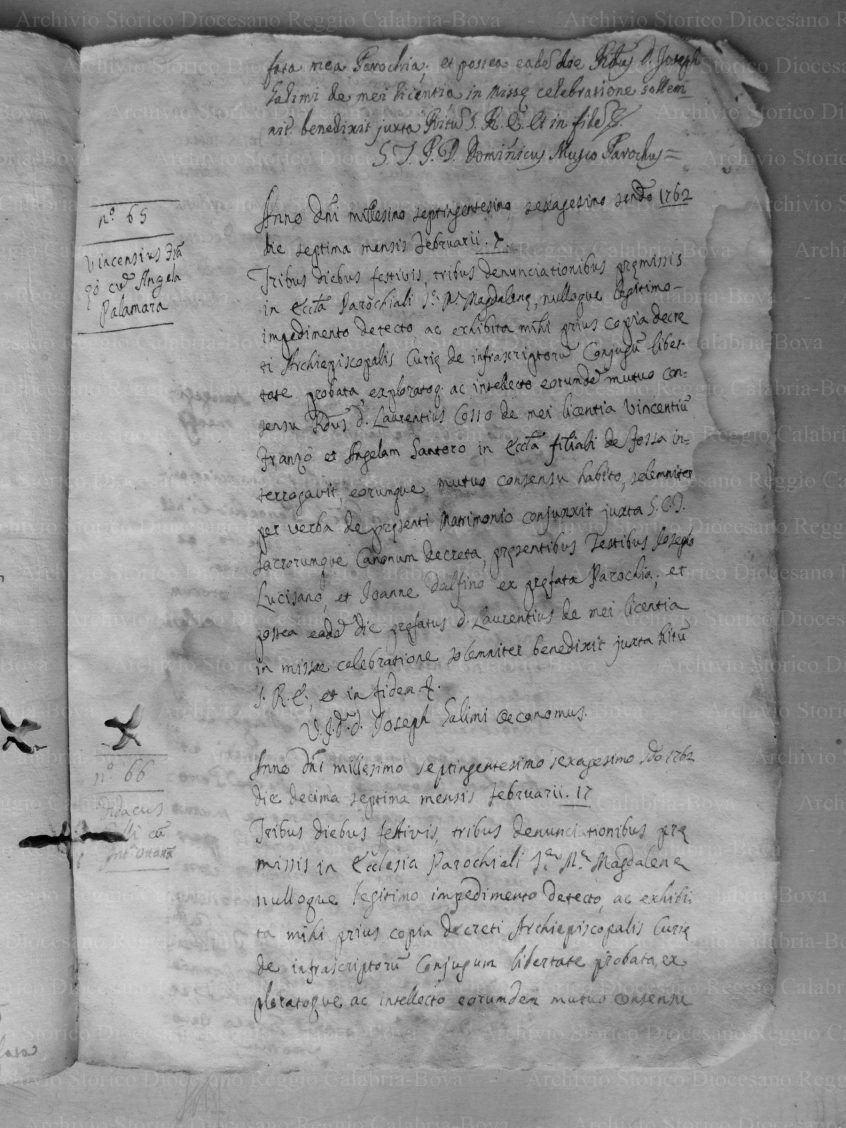 fata mea Parochia; et postea eadē die Rdus D. Joseph
Salimi de mei licentia in missę celebratione sollem
nit. benedixit juxta Ritū S. R. E. et in fidē &
S. T. P. D. Dominicus Musco Parochus =
nº 65
Vincensius Frā
zò cū Angela
Palamara
Anno Dnī millesimo septingentesimo sexagesimo sendo 1762
die septima mensis Februarii. 7.
Tribus diebus festivis, tribus denunciationibus pręmissis
in Ecctā Parochiali Sę Mę Magdalenę, nulloque legitimo
impedimento detecto, ac exhibita mihi prius copia decre
ti Archiepiscopalis Curię de infrascriptorū Conjugū liber-
tate probata, exploratoq. ac intellecto eorumdē mutuo con-
sensu Rdus D. Laurentius Cosso de mei licentia Vincentiū
Franzò et Angelam Santoro in Ecctā filiali de Fossa in=
terrogavit, eorumque mutuo consensu habito, solemniter
per verba de pręsenti Matrimonio conjunxit juxta S. C. T.
Sacrorumque Canonum decreta, pręsentibus Testibus Joseph
Lucisano, et Joanne Dalfino ex pręfata Parochia; et
postea eadē die pręfatus D. Laurentius de mei licentia
in missae celebratione solemniter benedixit juxta Ritū
S. R. E., et in fidem &.
U. J. D. D. Joseph Salimi Œconomus.
nº 66
Didacus
cū
Anno Dnī millesimo septingentesimo sexagesimo sdo 1762
die decima septima mensis Februarii. 17
Tribus diebus festivis tribus denunciationibus prę
missis in Ecclesia Parochiali Sę Mę Magdalenę
nulloque legitimo impedimento detecto, ac exhibi
ta mihi prius copia decreti Archiepiscopalis Curię
de infrascriptorū Conjugum libertate probata, ex
ploratoque ac intellecto eorumdem mutuo consensu
Archivio Storico Diocesano Reggio Calabria-Bova